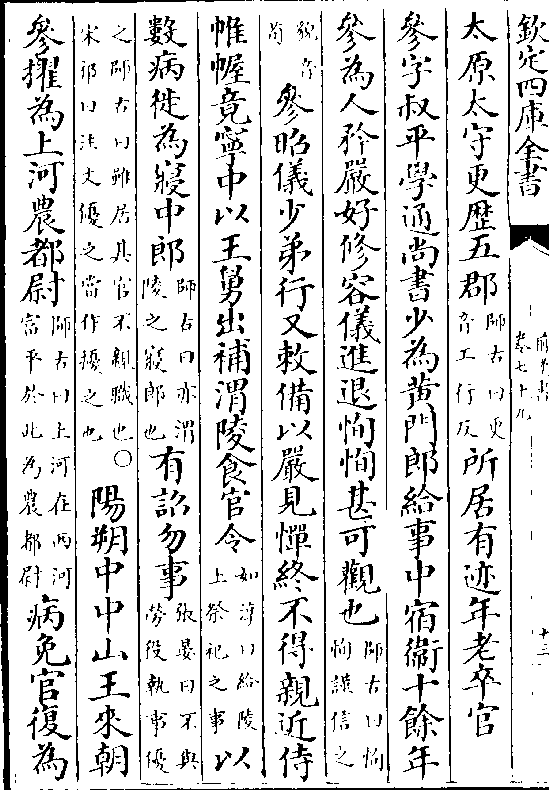 欽定四庫全書
前漢書
卷七十九
十三
太原太守更歷五郡師古曰更音工行反所居有迹年老卒官
參字叔平學通尚書少為黄門郎給事中宿衞十餘年
參為人矜嚴好修容儀進退恂恂甚可觀也師古曰恂恂謹信之貌音荀
參昭儀少弟行又敕備以嚴見憚終不得親近侍
帷幄竟寧中以王舅出補渭陵食官令如淳曰給陵上祭祀之事以
數病徙為寢中郎師古曰亦渭陵之寢郎也有詔勿事張晏曰不與勞役執事優之師古曰雖居其官不親職也○宋祁曰注文優之當作擾之也
陽朔中中山王來朝
參擢為上河農都尉師古曰上河在西河富平於此為農都尉病免官復為